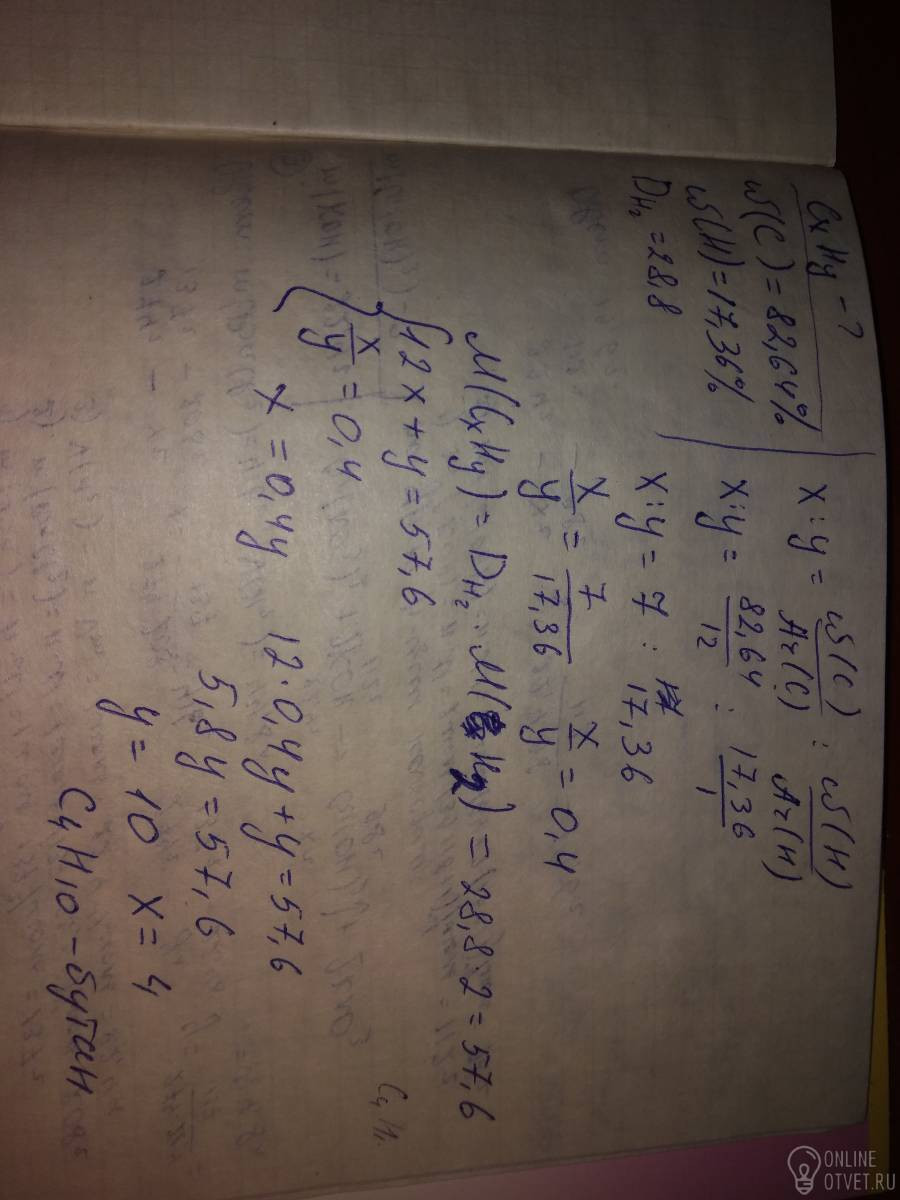 CxHy - ?
ω(C) = 82,64%
ω(H) = 17,36%
D_H₂ = 28,8
x : y = ω(C)/Ar(C) : ω(H)/Ar(H)
x : y = 82,64/12 : 17,36/1
x : y = 7 : 17,36
x/y = 7/17,36 x/y = 0,4
M(CxHy) = D_H₂ · M(H₂) = 28,8·2 = 57,6
{12x + y = 57,6
x/y = 0,4
x = 0,4y 12·0,4y + y = 57,6
5,8y = 57,6
y = 10 x = 4
C₄H₁₀ - бутан
ONLINE
OTVET.RU